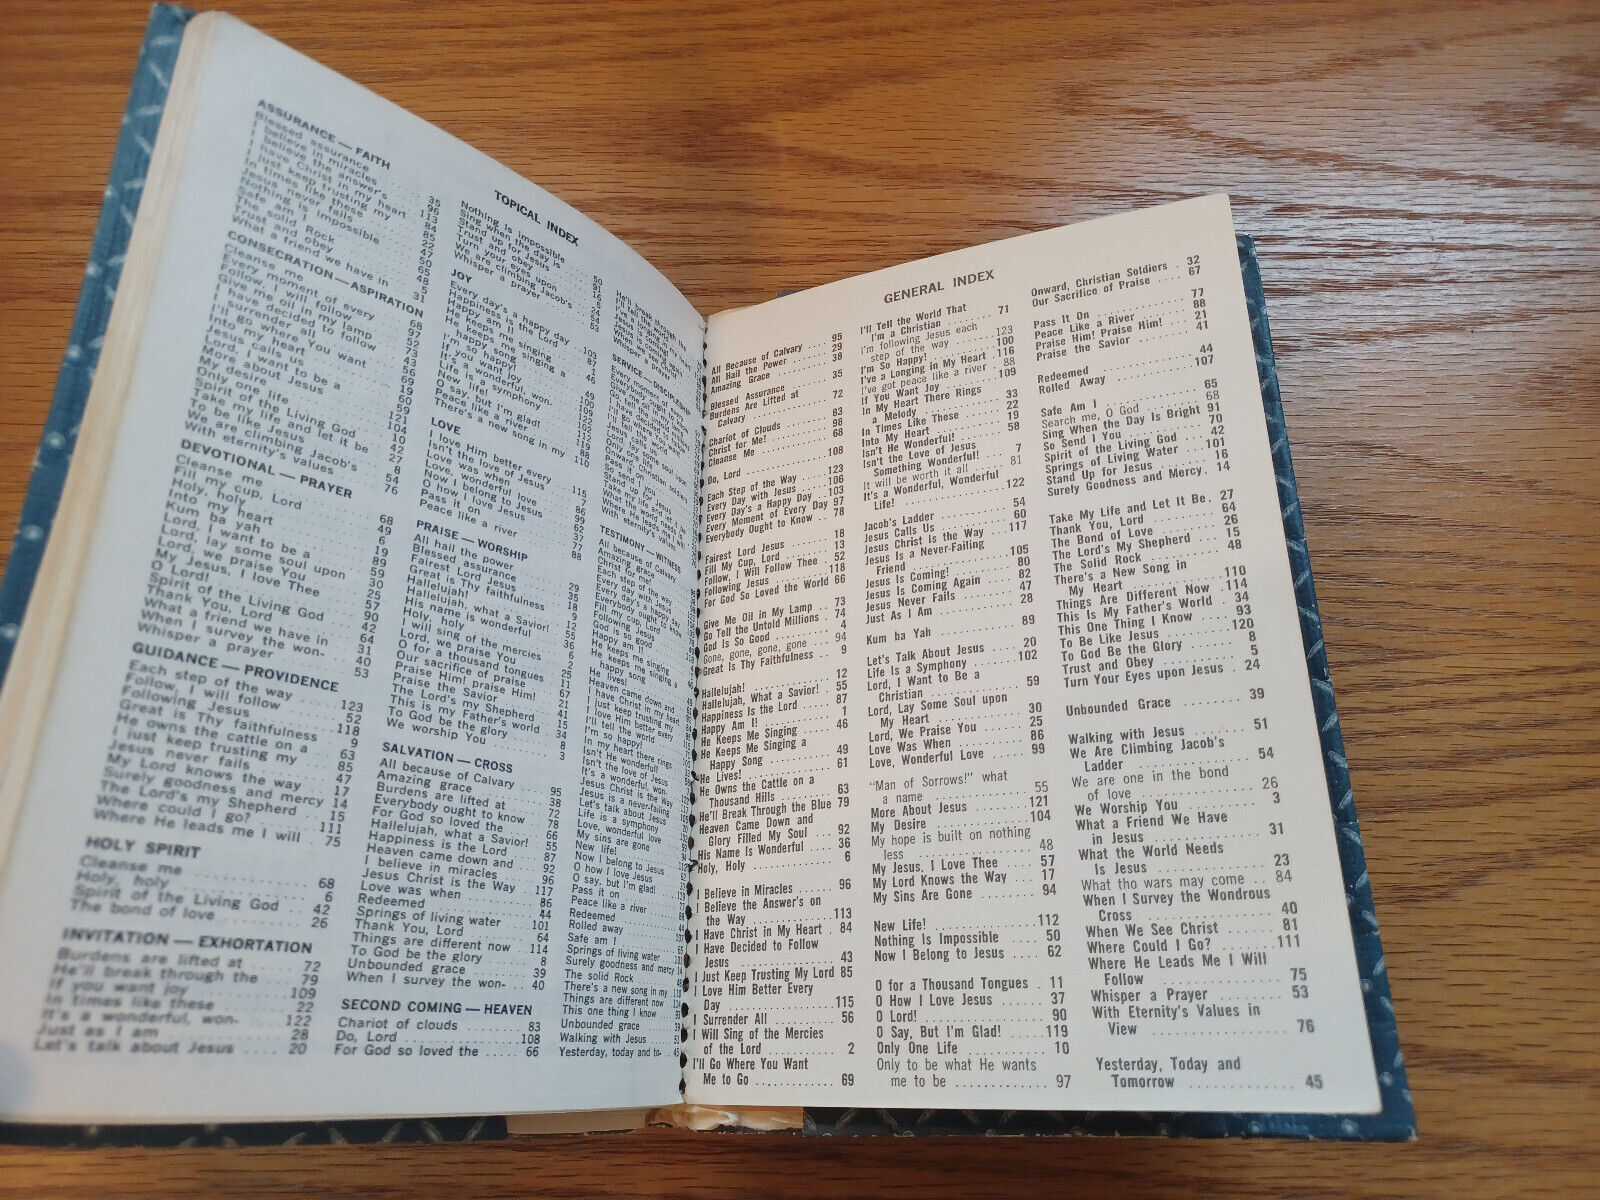 TOPICAL INDEX
ASSURANCE — FAITH
Blessed assurance ... 35
I believe in miracles ... 96
I believe the answer's ... 113
I have Christ in my heart ... 84
I just keep trusting my ... 85
In times like these ... 22
Jesus never fails ... 47
Nothing is impossible ... 50
Safe am I ... 65
The solid Rock ... 48
Trust and obey ... 5
What a friend we have in ... 31
CONSECRATION — ASPIRATION
Cleanse me ... 68
Every moment of every ... 97
Follow, I will follow ... 52
Give me oil in my lamp ... 73
I have decided to follow ... 43
I surrender all ... 56
I'll go where You want ... 69
Into my heart ... 19
Jesus calls us ... 60
Lord, I want to be a ... 59
More about Jesus ... 121
My desire ... 104
Only one life ... 10
Spirit of the Living God ... 42
Take my life and let it be ... 27
To be like Jesus ... 8
We are climbing Jacob's ... 54
With eternity's values ... 76
DEVOTIONAL — PRAYER
Cleanse me ... 68
Fill my cup, Lord
Holy, holy ... 6
Into my heart ... 19
Kum ba yah ... 89
Lord, I want to be a ... 59
Lord, lay some soul upon ... 30
Lord, we praise You ... 25
My Jesus, I love Thee ... 57
O Lord! ... 90
Spirit of the Living God ... 42
Thank You, Lord ... 64
What a friend we have in ... 31
When I survey the won- ... 40
Whisper a prayer ... 53
GUIDANCE — PROVIDENCE
Each step of the way ... 123
Follow, I will follow ... 52
Following Jesus ... 118
Great is Thy faithfulness ... 9
He owns the cattle on a ... 63
I just keep trusting my ... 85
Jesus never fails ... 47
My Lord knows the way ... 17
Surely goodness and mercy 14
The Lord's my Shepherd ... 15
Where could I go? ... 111
Where He leads me I will ... 75
HOLY SPIRIT
Cleanse me ... 68
Holy, holy ... 6
Spirit of the Living God ... 42
The bond of love ... 26
INVITATION — EXHORTATION
Burdens are lifted at ... 72
He'll break through the ... 79
If you want joy ... 109
In times like these ... 22
It's a wonderful, won- ... 122
Just as I am ... 28
Let's talk about Jesus ... 20
Nothing is impossible ... 50
Sing when the day is ... 91
Stand up for Jesus ... 16
Trust and obey ... 5
Turn your eyes upon ... 24
We are climbing Jacob's ... 54
Whisper a prayer ... 53
JOY
Every day's a happy day ... 103
Happiness is the Lord ... 87
Happy am I ... 1
He keeps me singing ... 46
He keeps me singing a
happy song ... 49
I'm so happy! ... 100
If you want joy ... 109
It's a wonderful, won- ... 122
Life is a symphony ... 102
New life! ... 112
O say, but I'm glad! ... 119
Peace like a river ... 88
There's a new song in my ... 110
LOVE
I love Him better every ... 115
Isn't the love of Jesus ... 7
Love was when ... 86
Love, wonderful love ... 99
Now I belong to Jesus ... 62
O how I love Jesus ... 37
Pass it on ... 77
Peace like a river ... 88
PRAISE — WORSHIP
All hail the power ... 29
Blessed assurance ... 35
Fairest Lord Jesus ... 18
Great is Thy faithfulness ... 9
Hallelujah! ... 12
Hallelujah, what a Savior! ... 55
His name is wonderful ... 36
Holy, holy ... 6
I will sing of the mercies ... 2
Lord, we praise You ... 25
O for a thousand tongues ... 11
Our sacrifice of praise ... 67
Praise Him! praise Him! ... 21
Praise the Savior ... 41
The Lord's my Shepherd ... 15
This is my Father's world ... 34
To God be the glory ... 8
We worship You ... 3
SALVATION — CROSS
All because of Calvary ... 95
Amazing grace ... 38
Burdens are lifted at ... 72
Everybody ought to know ... 78
For God so loved the ... 66
Hallelujah, what a Savior! ... 55
Happiness is the Lord ... 87
Heaven came down and ... 92
I believe in miracles ... 96
Jesus Christ is the Way ... 117
Love was when ... 86
Redeemed ... 44
Springs of living water ... 101
Thank You, Lord ... 64
Things are different now ... 114
To God be the glory ... 8
Unbounded grace ... 39
When I survey the won- ... 40
SECOND COMING — HEAVEN
Chariot of clouds ... 83
Do, Lord ... 108
For God so loved the ... 66
He'll break through the
I'll tell the
Jesus is coming
SERVICE — DISCIPLESHIP
Every moment of every
Give me oil in my lamp
I have decided to
Jesus calls us
Lord, lay some soul upon
Only one life
Onward Christian soldiers
Pass it on
So send I you
Stand up for Jesus
Take my life and let
What the world needs is
Where He leads me I will
With eternity's values
TESTIMONY — WITNESS
All because of Calvary
Amazing grace
Christ for me!
Each step of the way
Every day with Jesus
Every day's a happy day
Everybody ought to know
Fill my cup, Lord
Following Jesus
God is so good
Happy am I!
He keeps me singing
He keeps me singing a
happy song
He lives!
Heaven came down and
I have Christ in my heart
I just keep trusting my
I love Him better every
I'll tell the world
I'm so happy!
In my heart there rings
Isn't He wonderful
Isn't the love of Jesus
It's a wonderful, won-
Jesus Christ is the Way
Jesus is a never-failing
Let's talk about Jesus
Life is a symphony
Love, wonderful love
My sins are gone
New life!
Now I belong to Jesus
O how I love Jesus
O say, but I'm glad!
Pass it on
Peace like a river
Redeemed
Rolled away
Safe am I
Springs of living water
Surely goodness and mercy 14
The solid Rock
There's a new song in my
Things are different now
This one thing I know
Unbounded grace
Walking with Jesus
Yesterday, today and to-
GENERAL INDEX
All Because of Calvary ... 95
All Hail the Power ... 29
Amazing Grace ... 38
Blessed Assurance ... 35
Burdens Are Lifted at
Calvary ... 72
Chariot of Clouds ... 83
Christ for Me! ... 98
Cleanse Me ... 68
Do, Lord ... 108
Each Step of the Way ... 123
Every Day with Jesus ... 106
Every Day's a Happy Day ... 103
Every Moment of Every Day 97
Everybody Ought to Know ... 78
Fairest Lord Jesus ... 18
Fill My Cup, Lord ... 13
Follow, I Will Follow Thee ... 52
Following Jesus ... 118
For God So Loved the World 66
Give Me Oil in My Lamp ... 73
Go Tell the Untold Millions ... 74
God Is So Good ... 4
Gone, gone, gone, gone ... 94
Great Is Thy Faithfulness ... 9
Hallelujah! ... 12
Hallelujah, What a Savior! ... 55
Happiness Is the Lord ... 87
Happy Am I! ... 1
He Keeps Me Singing ... 46
He Keeps Me Singing a
Happy Song ... 49
He Lives! ... 61
He Owns the Cattle on a
Thousand Hills ... 63
He'll Break Through the Blue 79
Heaven Came Down and
Glory Filled My Soul ... 92
His Name Is Wonderful ... 36
Holy, Holy ... 6
I Believe in Miracles ... 96
I Believe the Answer's on
the Way ... 113
I Have Christ in My Heart ... 84
I Have Decided to Follow
Jesus ... 43
I Just Keep Trusting My Lord 85
I Love Him Better Every
Day ... 115
I Surrender All ... 56
I Will Sing of the Mercies
of the Lord ... 2
I'll Go Where You Want
Me to Go ... 69
I'll Tell the World That
I'm a Christian ... 71
I'm following Jesus each
step of the way ... 123
I'm So Happy! ... 100
I've a Longing in My Heart ... 116
I've got peace like a river ... 88
If You Want Joy ... 109
In My Heart There Rings
a Melody ... 33
In Times Like These ... 22
Into My Heart ... 19
Isn't He Wonderful! ... 58
Isn't the Love of Jesus
Something Wonderful! ... 7
It will be worth it all ... 81
It's a Wonderful, Wonderful
Life! ... 122
Jacob's Ladder ... 54
Jesus Calls Us ... 60
Jesus Christ Is the Way ... 117
Jesus Is a Never-Failing
Friend ... 105
Jesus Is Coming! ... 80
Jesus Is Coming Again ... 82
Jesus Never Fails ... 47
Just As I Am ... 28
Kum ba Yah ... 89
Let's Talk About Jesus ... 20
Life Is a Symphony ... 102
Lord, I Want to Be a
Christian ... 59
Lord, Lay Some Soul upon
My Heart ... 30
Lord, We Praise You ... 25
Love Was When ... 86
Love, Wonderful Love ... 99
"Man of Sorrows!" what
a name ... 55
More About Jesus ... 121
My Desire ... 104
My hope is built on nothing
less ... 48
My Jesus, I Love Thee ... 57
My Lord Knows the Way ... 17
My Sins Are Gone ... 94
New Life! ... 112
Nothing Is Impossible ... 50
Now I Belong to Jesus ... 62
O for a Thousand Tongues . 11
O How I Love Jesus ... 37
O Lord! ... 90
O Say, But I'm Glad! ... 119
Only One Life ... 10
Only to be what He wants
me to be ... 97
Onward, Christian Soldiers . 32
Our Sacrifice of Praise ... 67
Pass It On ... 77
Peace Like a River ... 88
Praise Him! Praise Him! ... 21
Praise the Savior ... 41
Redeemed ... 44
Rolled Away ... 107
Safe Am I ... 65
Search me, O God ... 68
Sing When the Day Is Bright 91
So Send I You ... 70
Spirit of the Living God ... 42
Springs of Living Water ... 101
Stand Up for Jesus ... 16
Surely Goodness and Mercy . 14
Take My Life and Let It Be . 27
Thank You, Lord ... 64
The Bond of Love ... 26
The Lord's My Shepherd ... 15
The Solid Rock ... 48
There's a New Song in
My Heart ... 110
Things are Different Now ... 114
This Is My Father's World . 34
This One Thing I Know ... 93
To Be Like Jesus ... 120
To God Be the Glory ... 8
Trust and Obey ... 5
Turn Your Eyes upon Jesus . 24
Unbounded Grace ... 39
Walking with Jesus ... 51
We Are Climbing Jacob's
Ladder ... 54
We are one in the bond
of love ... 26
We Worship You ... 3
What a Friend We Have
in Jesus ... 31
What the World Needs
Is Jesus ... 23
What tho wars may come ... 84
When I Survey the Wondrous
Cross ... 40
When We See Christ ... 81
Where Could I Go? ... 111
Where He Leads Me I Will
Follow ... 75
Whisper a Prayer ... 53
With Eternity's Values in
View ... 76
Yesterday, Today and
Tomorrow ... 45